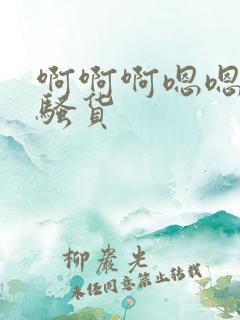 啊啊啊嗯嗯
骚货
柳岩光
未经同意禁止转载